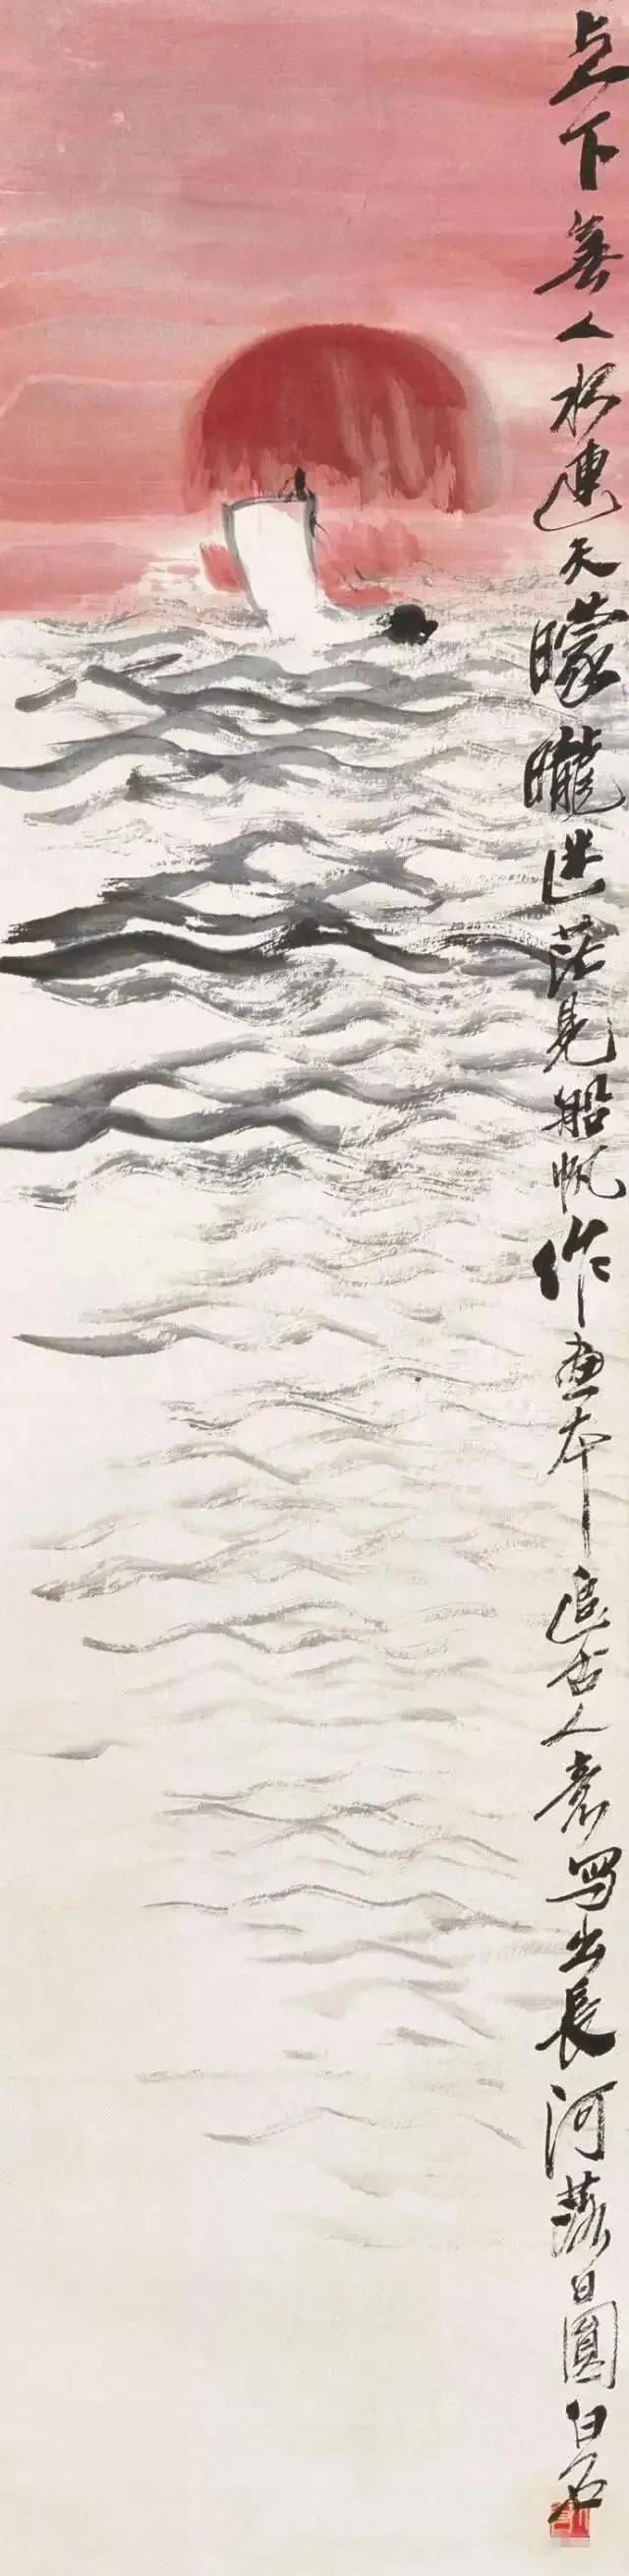 下
人
水連天
曚曨迷茫見船帆作畫本
追古人意寫出長河落日圓
白石